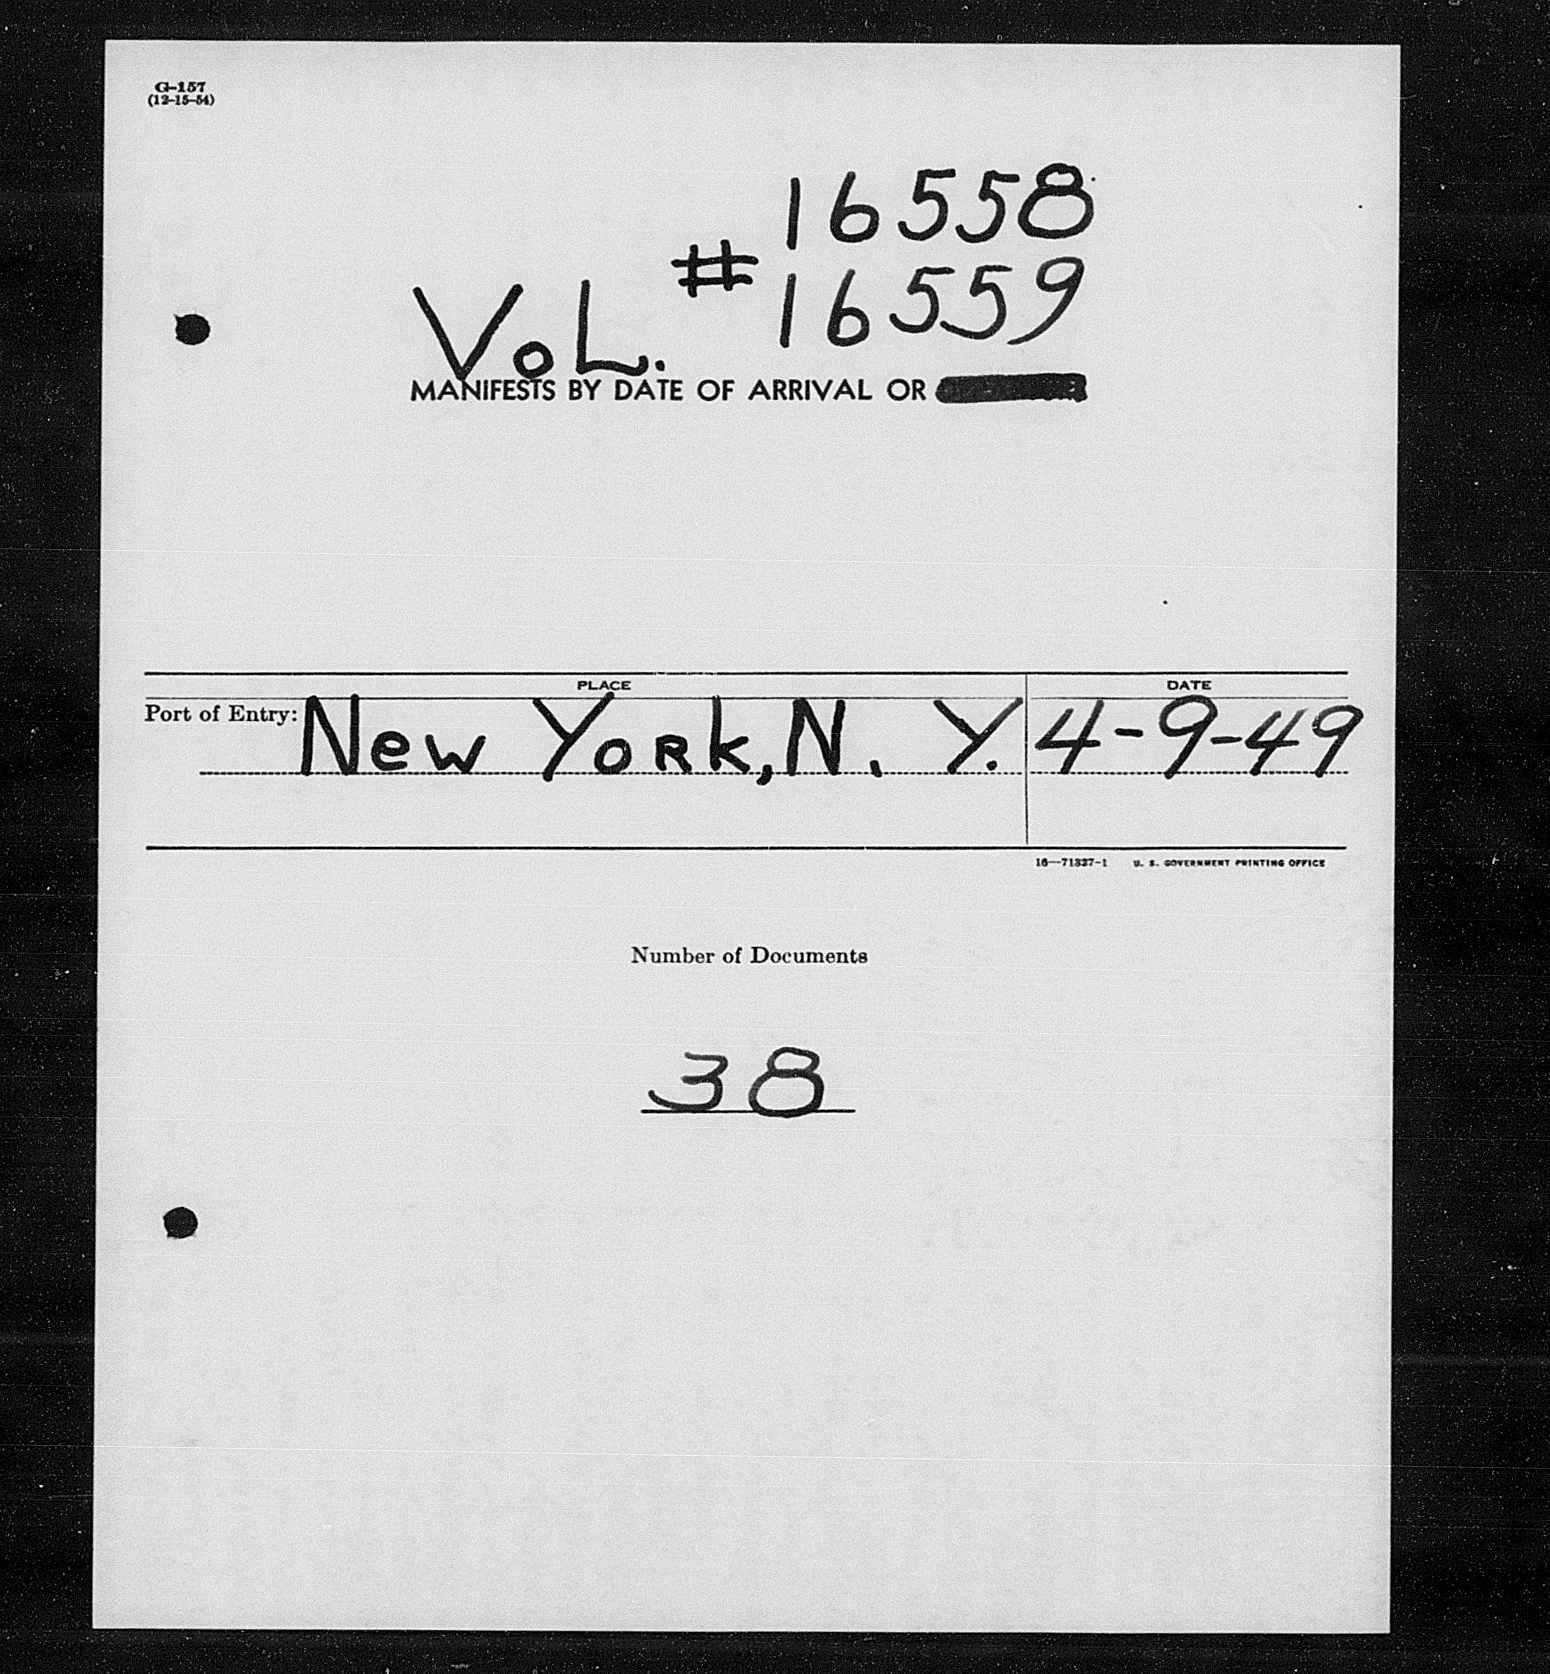 G-157
(12-15-54)
16558
VoL. # 16559
MANIFESTS BY DATE OF ARRIVAL OR
PLACE
DATE
Port of Entry: New York, N. Y. 4-9-49
16—71327-1 U. S. GOVERNMENT PRINTING OFFICE
Number of Documents
38